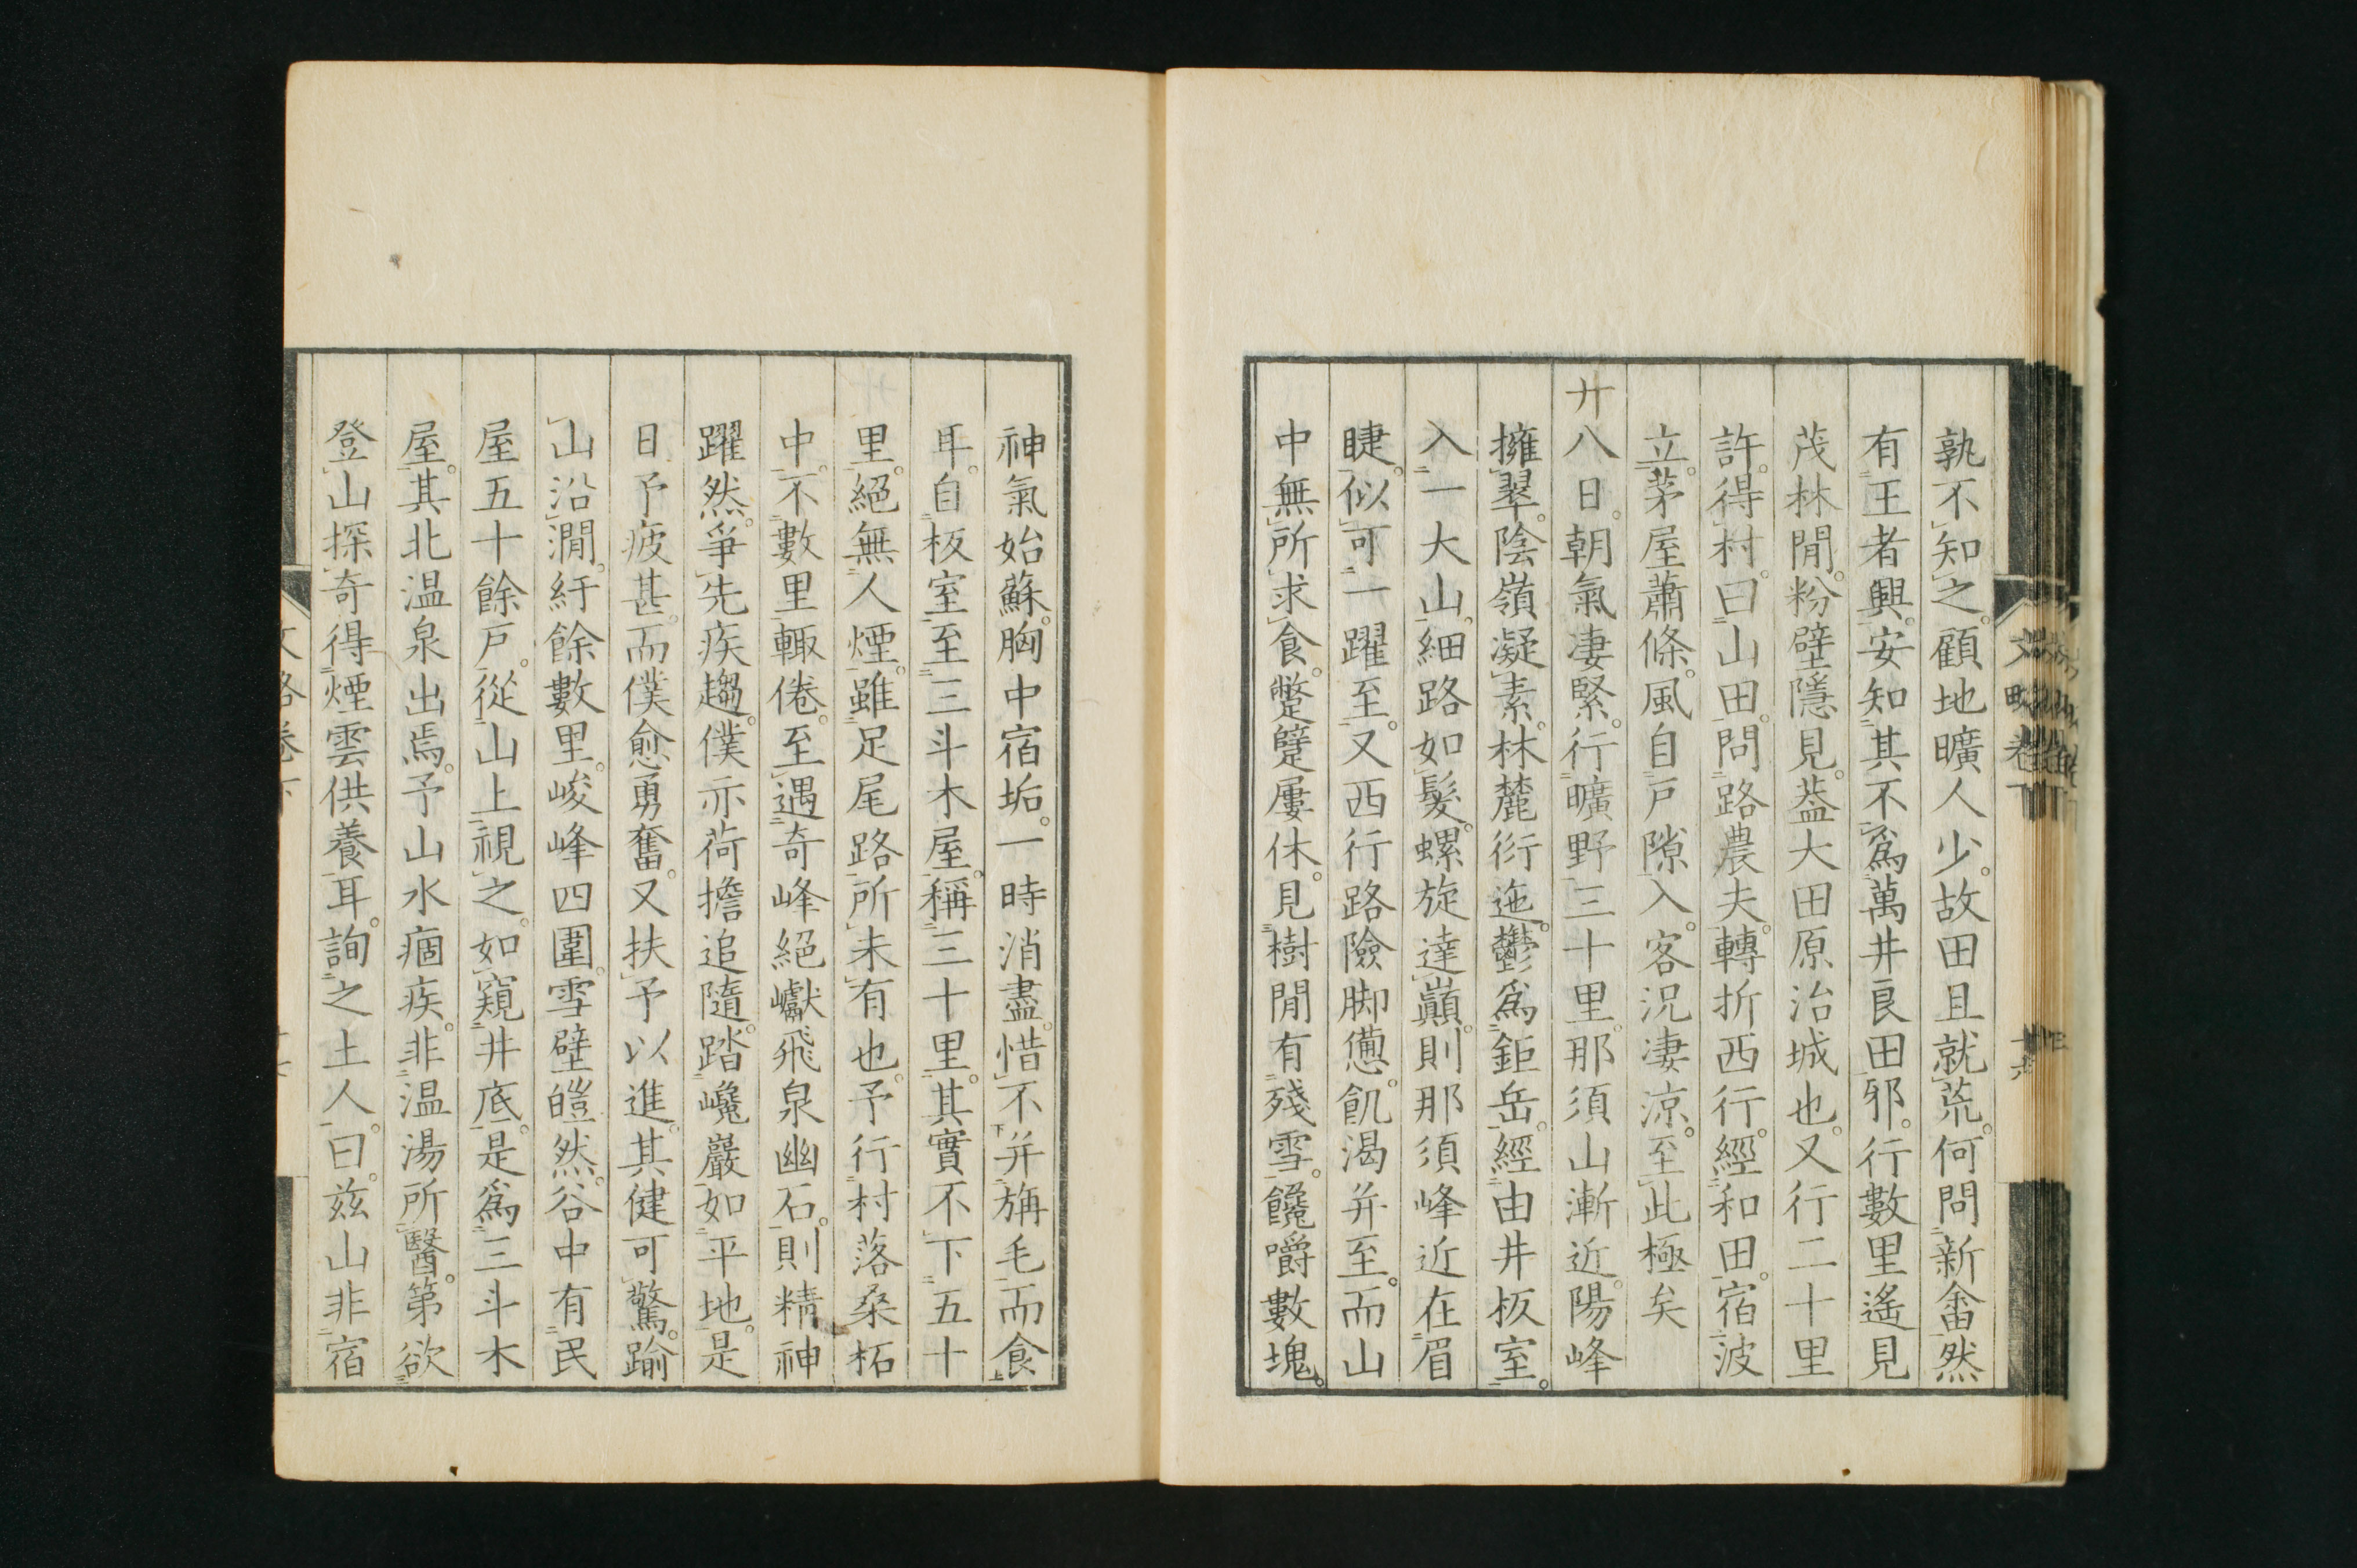 孰不知之。顧地曠人少。故田且就荒。何問新畬然
有王者興。安知其不爲萬井良田邪。行數里遙見
茂林閒。粉壁隱見。蓋大田原治城也。又行二十里
許。得村。曰山田。問路農夫。轉折西行。經和田。宿波
立。茅屋蕭條。風自戶隙入。客況凄涼。至此極矣
廿八日。朝氣凄緊。行曠野三十里。那須山漸近。陽峰
擁翠。陰嶺凝素。林麓衍迤。鬱爲鉅岳。經由井板室。
入一大山。細路如髮。螺旋達巔。則那須峰近在眉
睫。似可一躍至。又西行路險脚憊。飢渴并至。而山
中無所求食。蹩躠屢休。見樹閒有殘雪。饞嚼數塊。
神氣始蘇。胸中宿垢。一時消盡。惜不并旃毛而食
耳。自板室至三斗木屋。稱三十里。其實不下五十
里。絕無人煙。雖足尾路所未有也。予行村落桑柘
中。不數里輒倦。至遇奇峰絕巘飛泉幽石。則精神
躍然。爭先疾趨。僕亦荷擔追隨。踏巉巖如平地。是
日予疲甚。而僕愈勇奮。又扶予以進。其健可驚。踰
山沿澗。紆餘數里。峻峰四圍。雪壁皚然。谷中有民
屋五十餘戶。從山上視之。如窺井底。是爲三斗木
屋。其北温泉出焉。予山水痼疾。非温湯所醫。第欲
登山探奇得煙雲供養耳。詢之土人。曰。茲山非宿
文略卷
十六